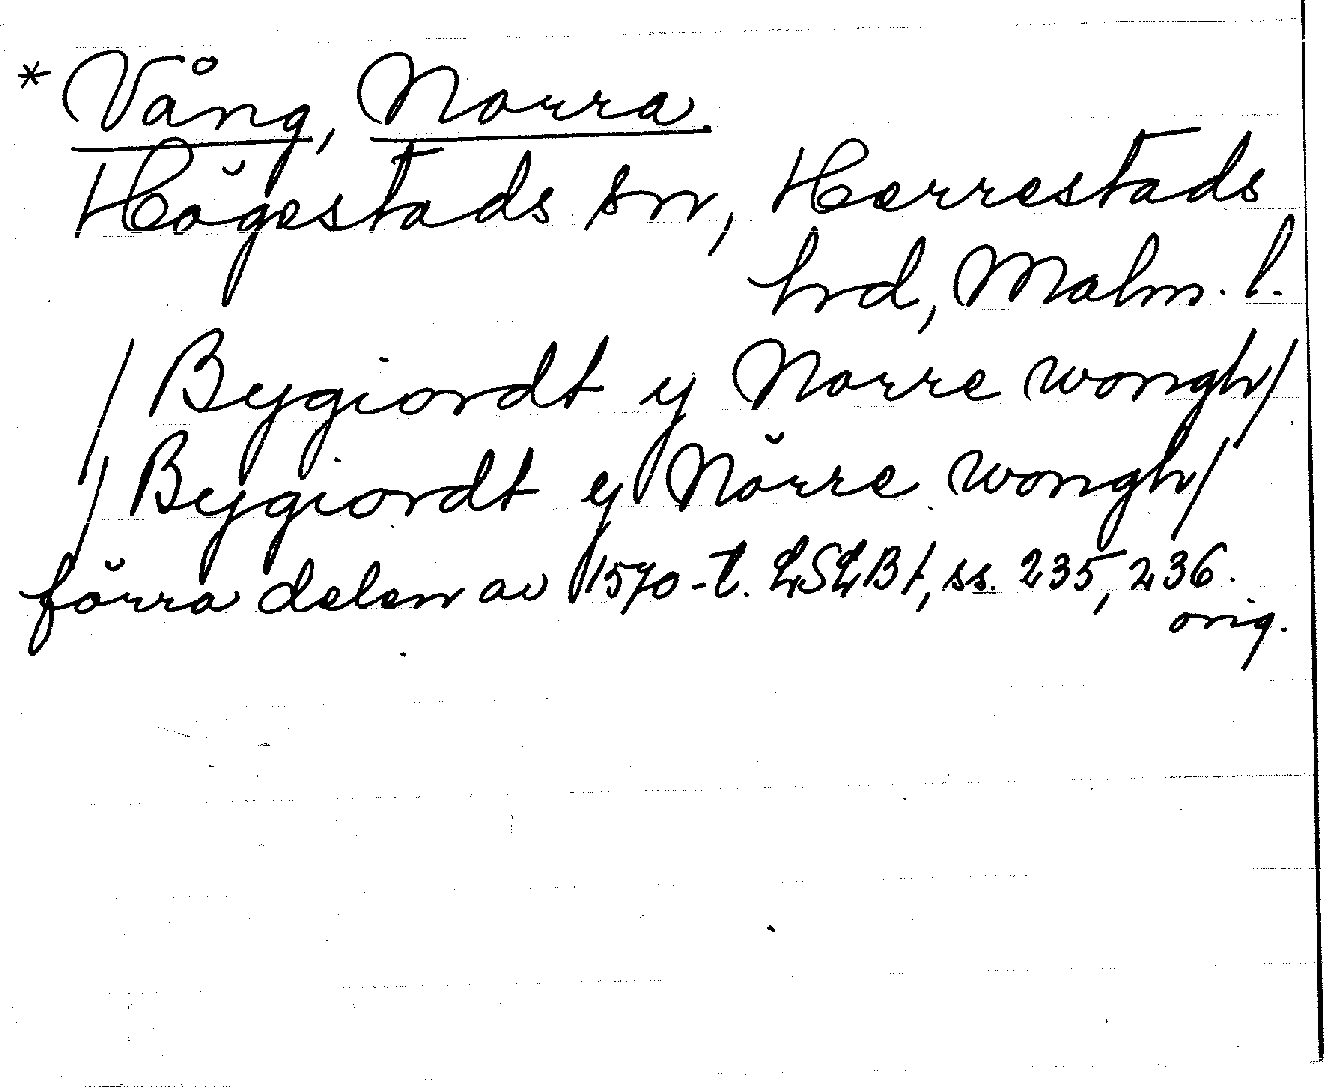 * Vång, Norra.
Högestads sn, Herrestads
hrd, Malm. l.
/Bygiordt y Norre wongh/
/Bygiordt y Nörre wongh/
förra delen av 1570-t. LSLB1, ss. 235, 236.
orig.